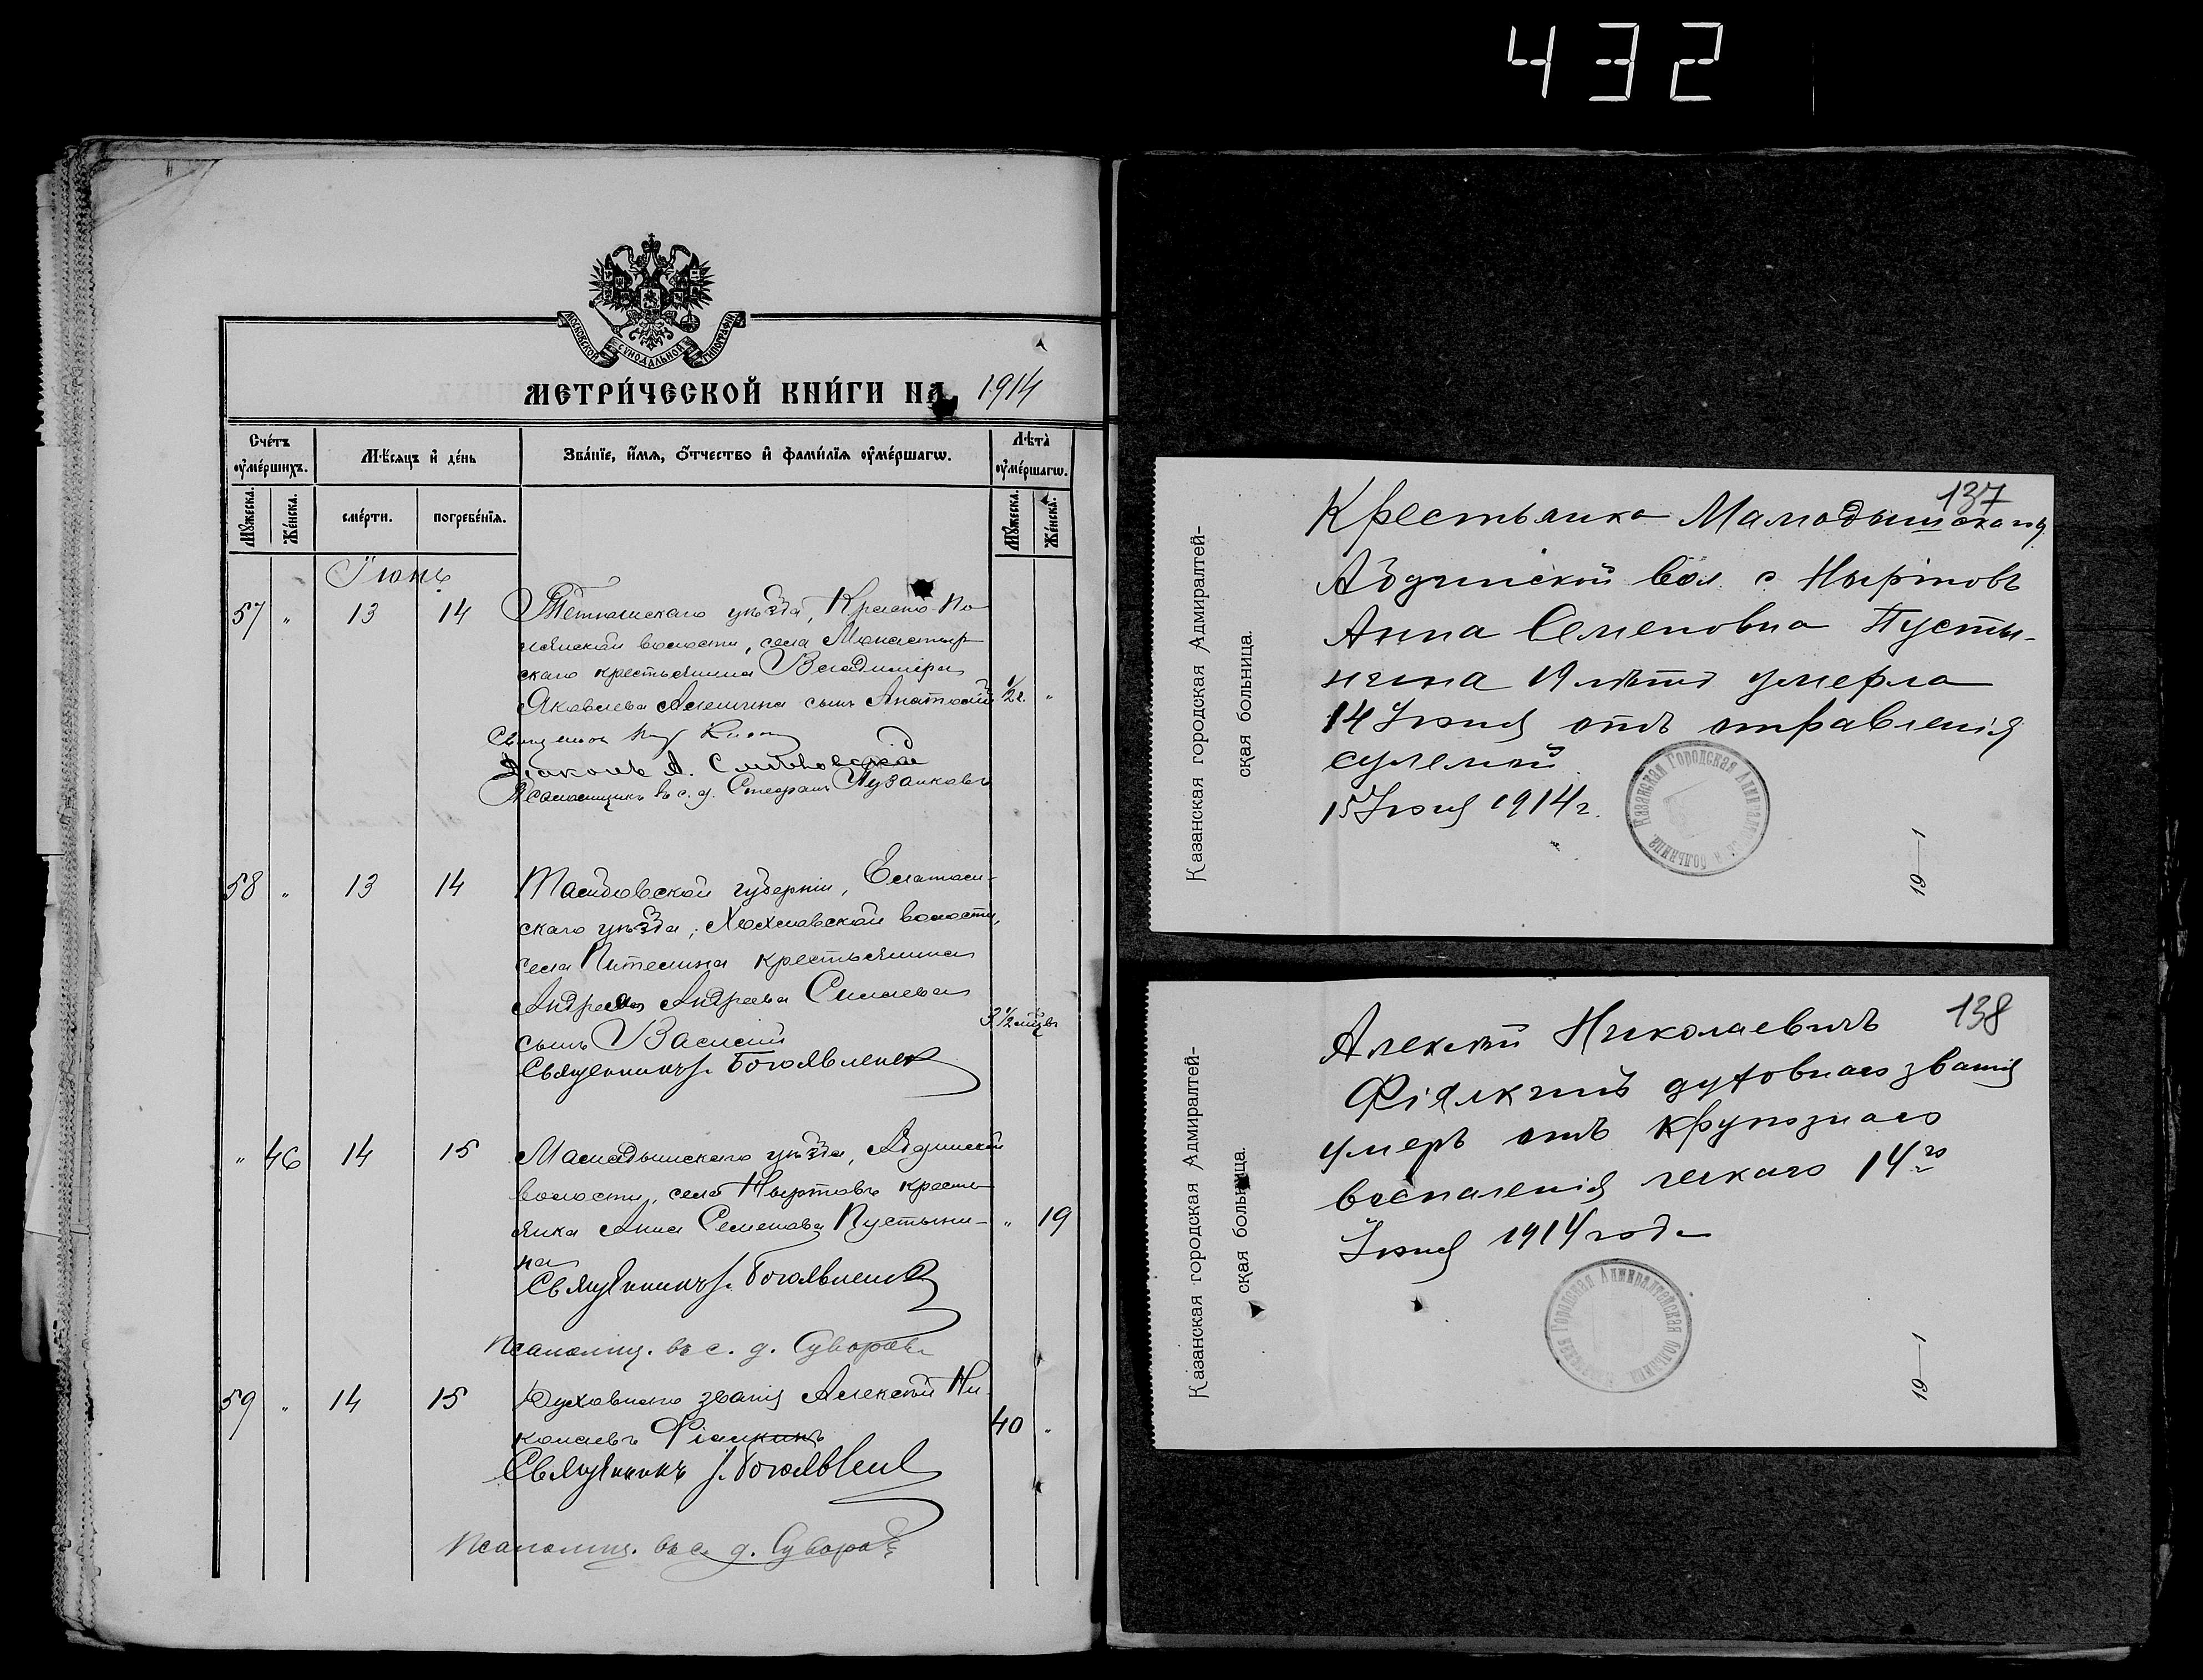 432
МОСКОВСКОЙ СѴНОДАЛЬНОЙ ТИПОГРАФІИ
МЕТРИ́ЧЕСКОЙ КНИ́ГИ НА 1914
Сче́тъ ᲂу҆ме́ршихъ.
Мѣ́сяцъ и҆ де́нь
Зва́нїе, и҆́мя, ѻ҆́тчество и҆ фами́лїя ᲂу҆ме́ршагѡ.
Лѣта̀ ᲂу҆ме́ршагѡ.
Мꙋ́жеска.
Же́нска.
сме́рти.
погребе́нїя.
Мꙋ́жеска.
Же́нска.
Іюнь
57 " 13 14 Тетюшскаго уѣзда, Красно-По-
лянской волости, села Монастыр-
скаго крестьянина Владиміра
Яковлева Алешина сынъ Анатолій 1/2 г. "
Священник
Діаконъ А. Смѣловскій
Псаломщикъ въ с. д. Стефанъ Пузанковъ
58 " 13 14 Тамбовской губерніи, Елатом-
скаго уѣзда, волости,
села Пителина крестьянина
Андрея Андреева Симаева
сынъ Василій 3 1/2 мѣс.
Священникъ І. Богоявленск
" 46 14 15 Мамадышскаго уѣзда, Абдинской
волости, села Нырловъ крестья-
янка Анна Семенова Пустыни- " 19
на
Священникъ І. Богоявленск
Псаломщ. въ с. д. Суворовъ
59 " 14 15 Духовнаго званія Алексѣй Ни-
колаевъ Фіалкинъ 40 "
Священникъ І. Богоявлен
Псаломщ. въ с. д. Суворовъ
Казанская городская Адмиралтей-
ская больница.
137
Крестьянка Мамадышскаго у.
Абдинской вол. с. Ныртовъ
Анна Семеновна Пусты-
нина 19 лѣтъ умерла
14 Іюня отъ отравленія
сулемой
15 Іюня 1914 г.
Казанская Городская Адмиралтейская больница
19—1
Казанская городская Адмиралтей-
ская больница.
138
Алексѣй Николаевичъ
Фіялкинъ духовнаго званія
умеръ отъ крупознаго
воспаленія легкаго 14го
Іюня 1914 года
Казанская Городская Адмиралтейская больница
19—1